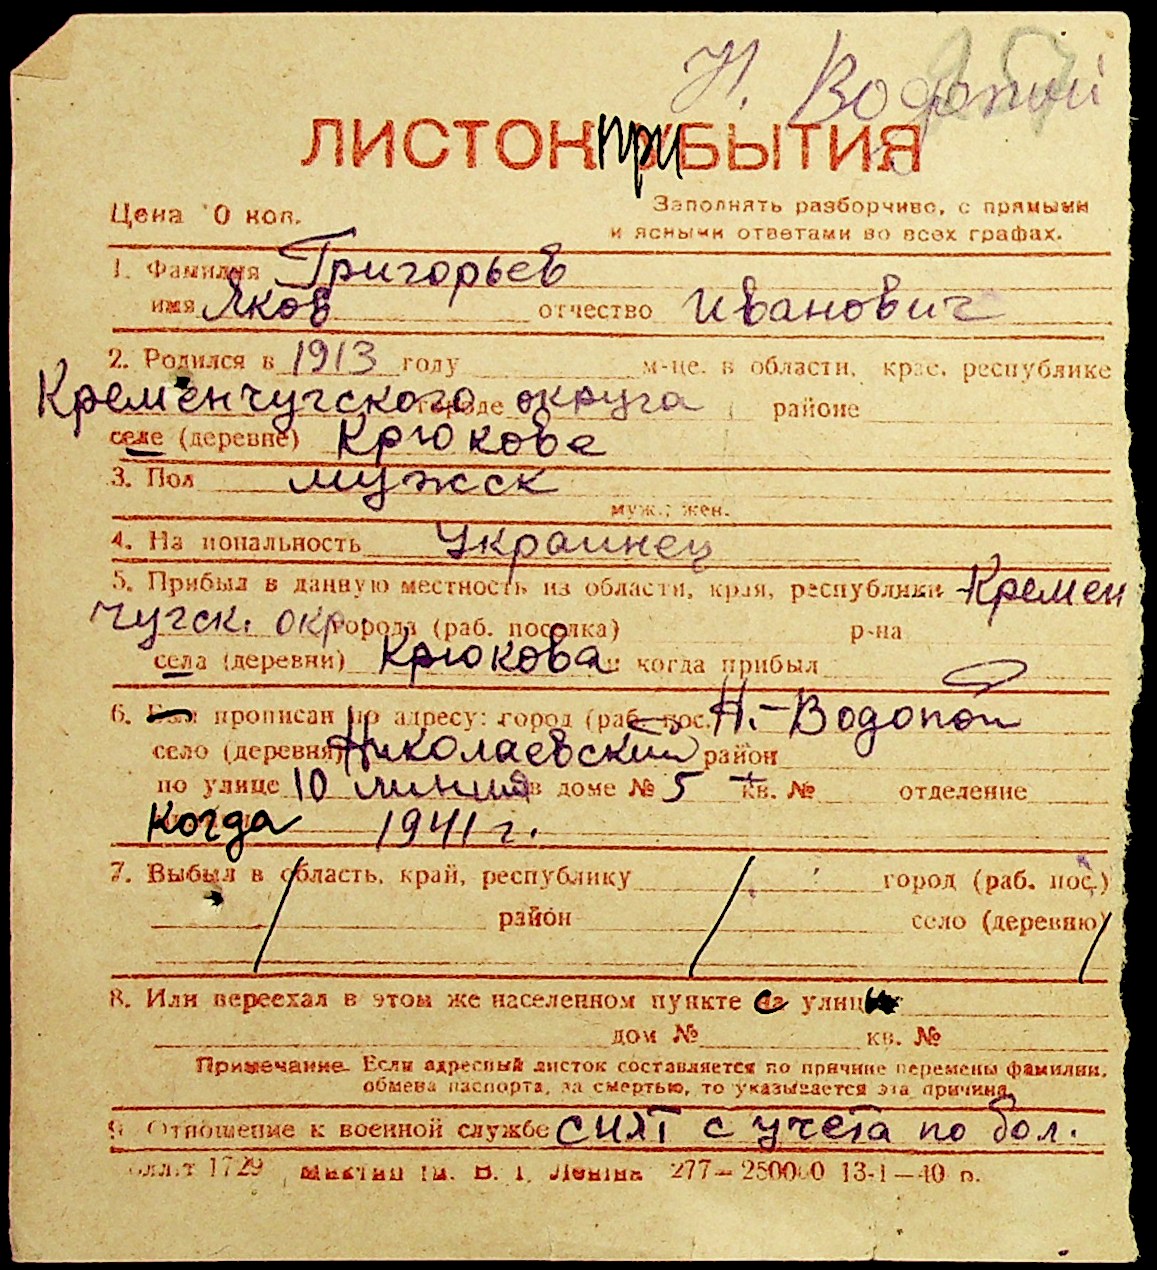 Н. Водопой
ЛИСТОК ПРИБЫТИЯ
Цена 0 коп.
Заполнять разборчиво, с прямыми
и ясными ответами во всех графах.
1. Фамилия Григорьев
имя Яков отчество Иванович
2. Родился в 1913 году м-це. в области, крае, республике
Кременчугского городе округа районе
селе (деревне) Крюкове
3. Пол мужск
муж.; жен.
4. На иональность Украинец
5. Прибыл в данную местность из области, края, республики Кремен
чугск. окр. города (раб. поселка) р-на
села (деревни) Крюкова и когда прибыл
6. Был прописан по адресу: город (раб. пос. Н.-Водопой
село (деревня) Николаевский район
по улице 10 линия в доме № 5 кв. № отделение
Когда 1941 г.
7. Выбыл в область, край, республику город (раб. пос.)
район село (деревню)
8. Или переехал в этом же населенном пункте с улиц
дом № кв. №
Примечание. Если адресный листок составляется по причине перемены фамилии,
обмена паспорта, за смертью, то указывается эта причина.
9. Отношение к военной службе снят с учета по бол.
1729 В. І. Леніна 277—250000 13-I—40 р.